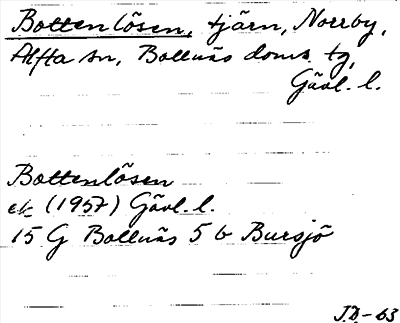 Bottenlösen, tjärn, Norrby,
Alfta sn, Bollnäs doms. tg,
Gävl. l.
Bottenlösen
ek (1957) Gävl. l.
15 G Bollnäs 5 b Bursjö
J.D.-63